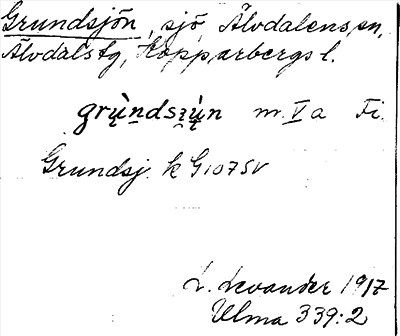 Grundsjön, sjö Älvdalens sn,
Älvdals tg, Kopparbergs l.
grụ̀ndsʒụ̀n m. V a Fi.
Grundsj. k G107SV
L. Levander 1917
Ulma 339:2